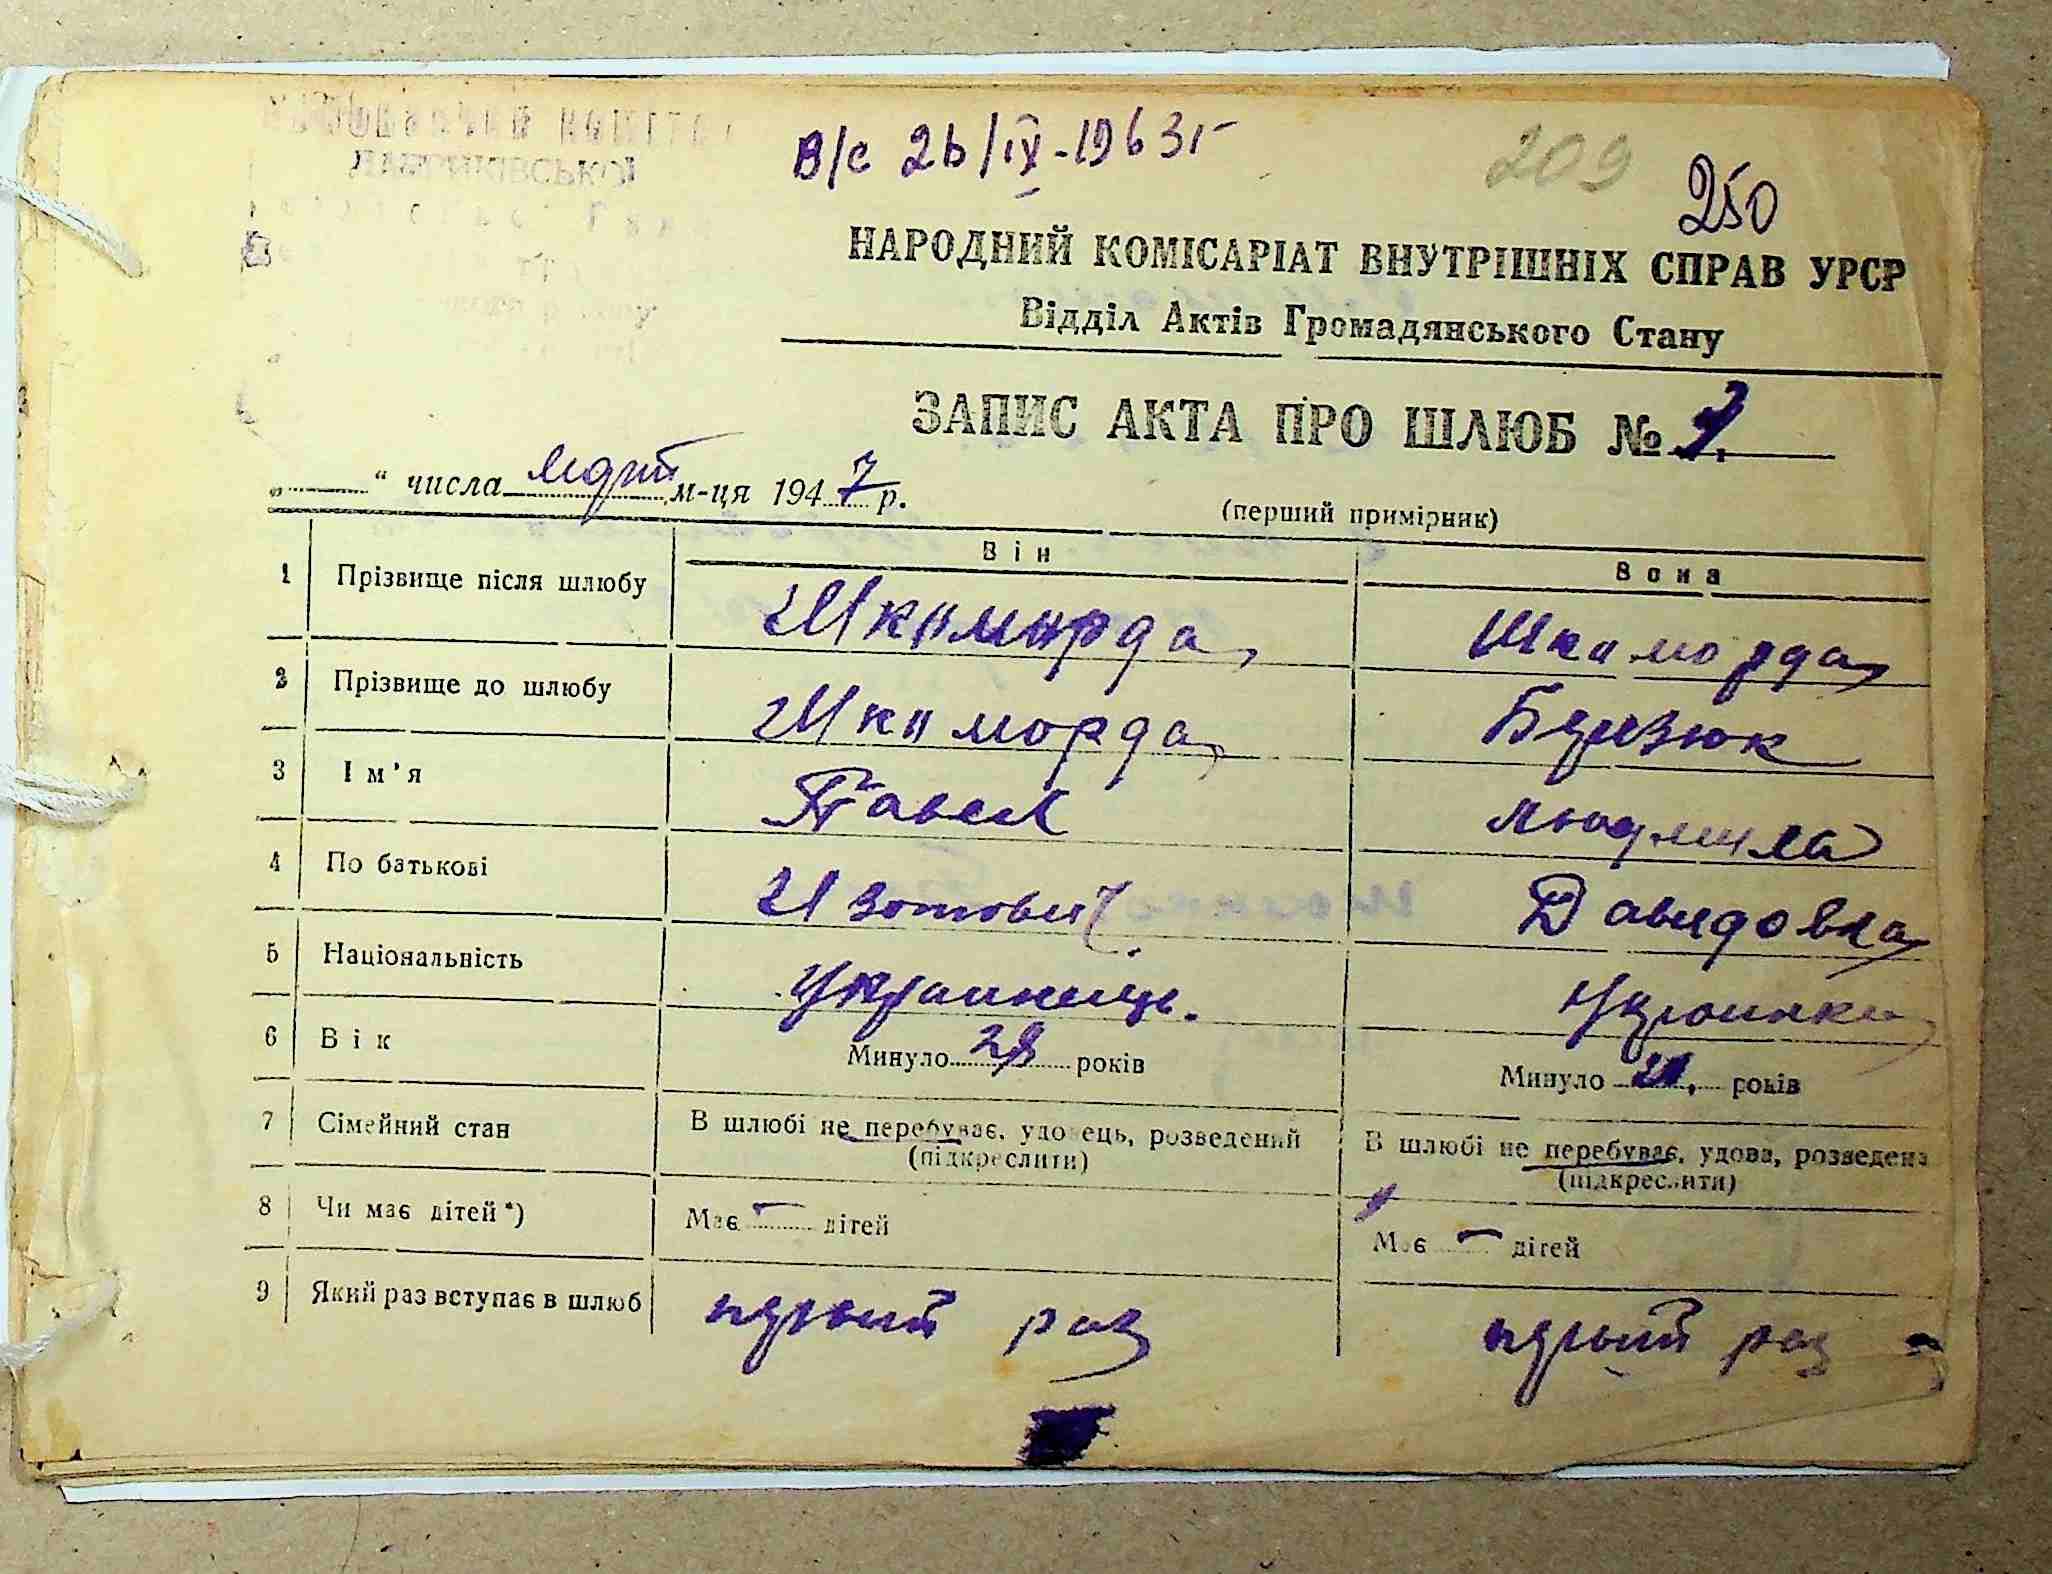 В/с 26/IX-1963г
209
250
НАРОДНИЙ КОМІСАРІАТ ВНУТРІШНІХ СПРАВ УРСР
Відділ Актів Громадянського Стану
ЗАПИС АКТА ПРО ШЛЮБ №
„ “ числа март м-ця 1947 р.
(перший примірник)
Він Вона
1 Прізвище після шлюбу Шкаморда Шкаморда
2 Прізвище до шлюбу Шкаморда Березюк
3 Ім'я Павел Людмила
4 По батькові Изотович Давидовна
5 Національність Украинець. Украинка
6 Вік Минуло 28 років Минуло 21, років
7 Сімейний стан В шлюбі не перебуває, удовець, розведений В шлюбі не перебуває, удова, розведена
(підкреслити) (підкреслити)
8 Чи має дітей*) Має — дітей Має — дітей
9 Який раз вступає в шлюб первий раз первий раз